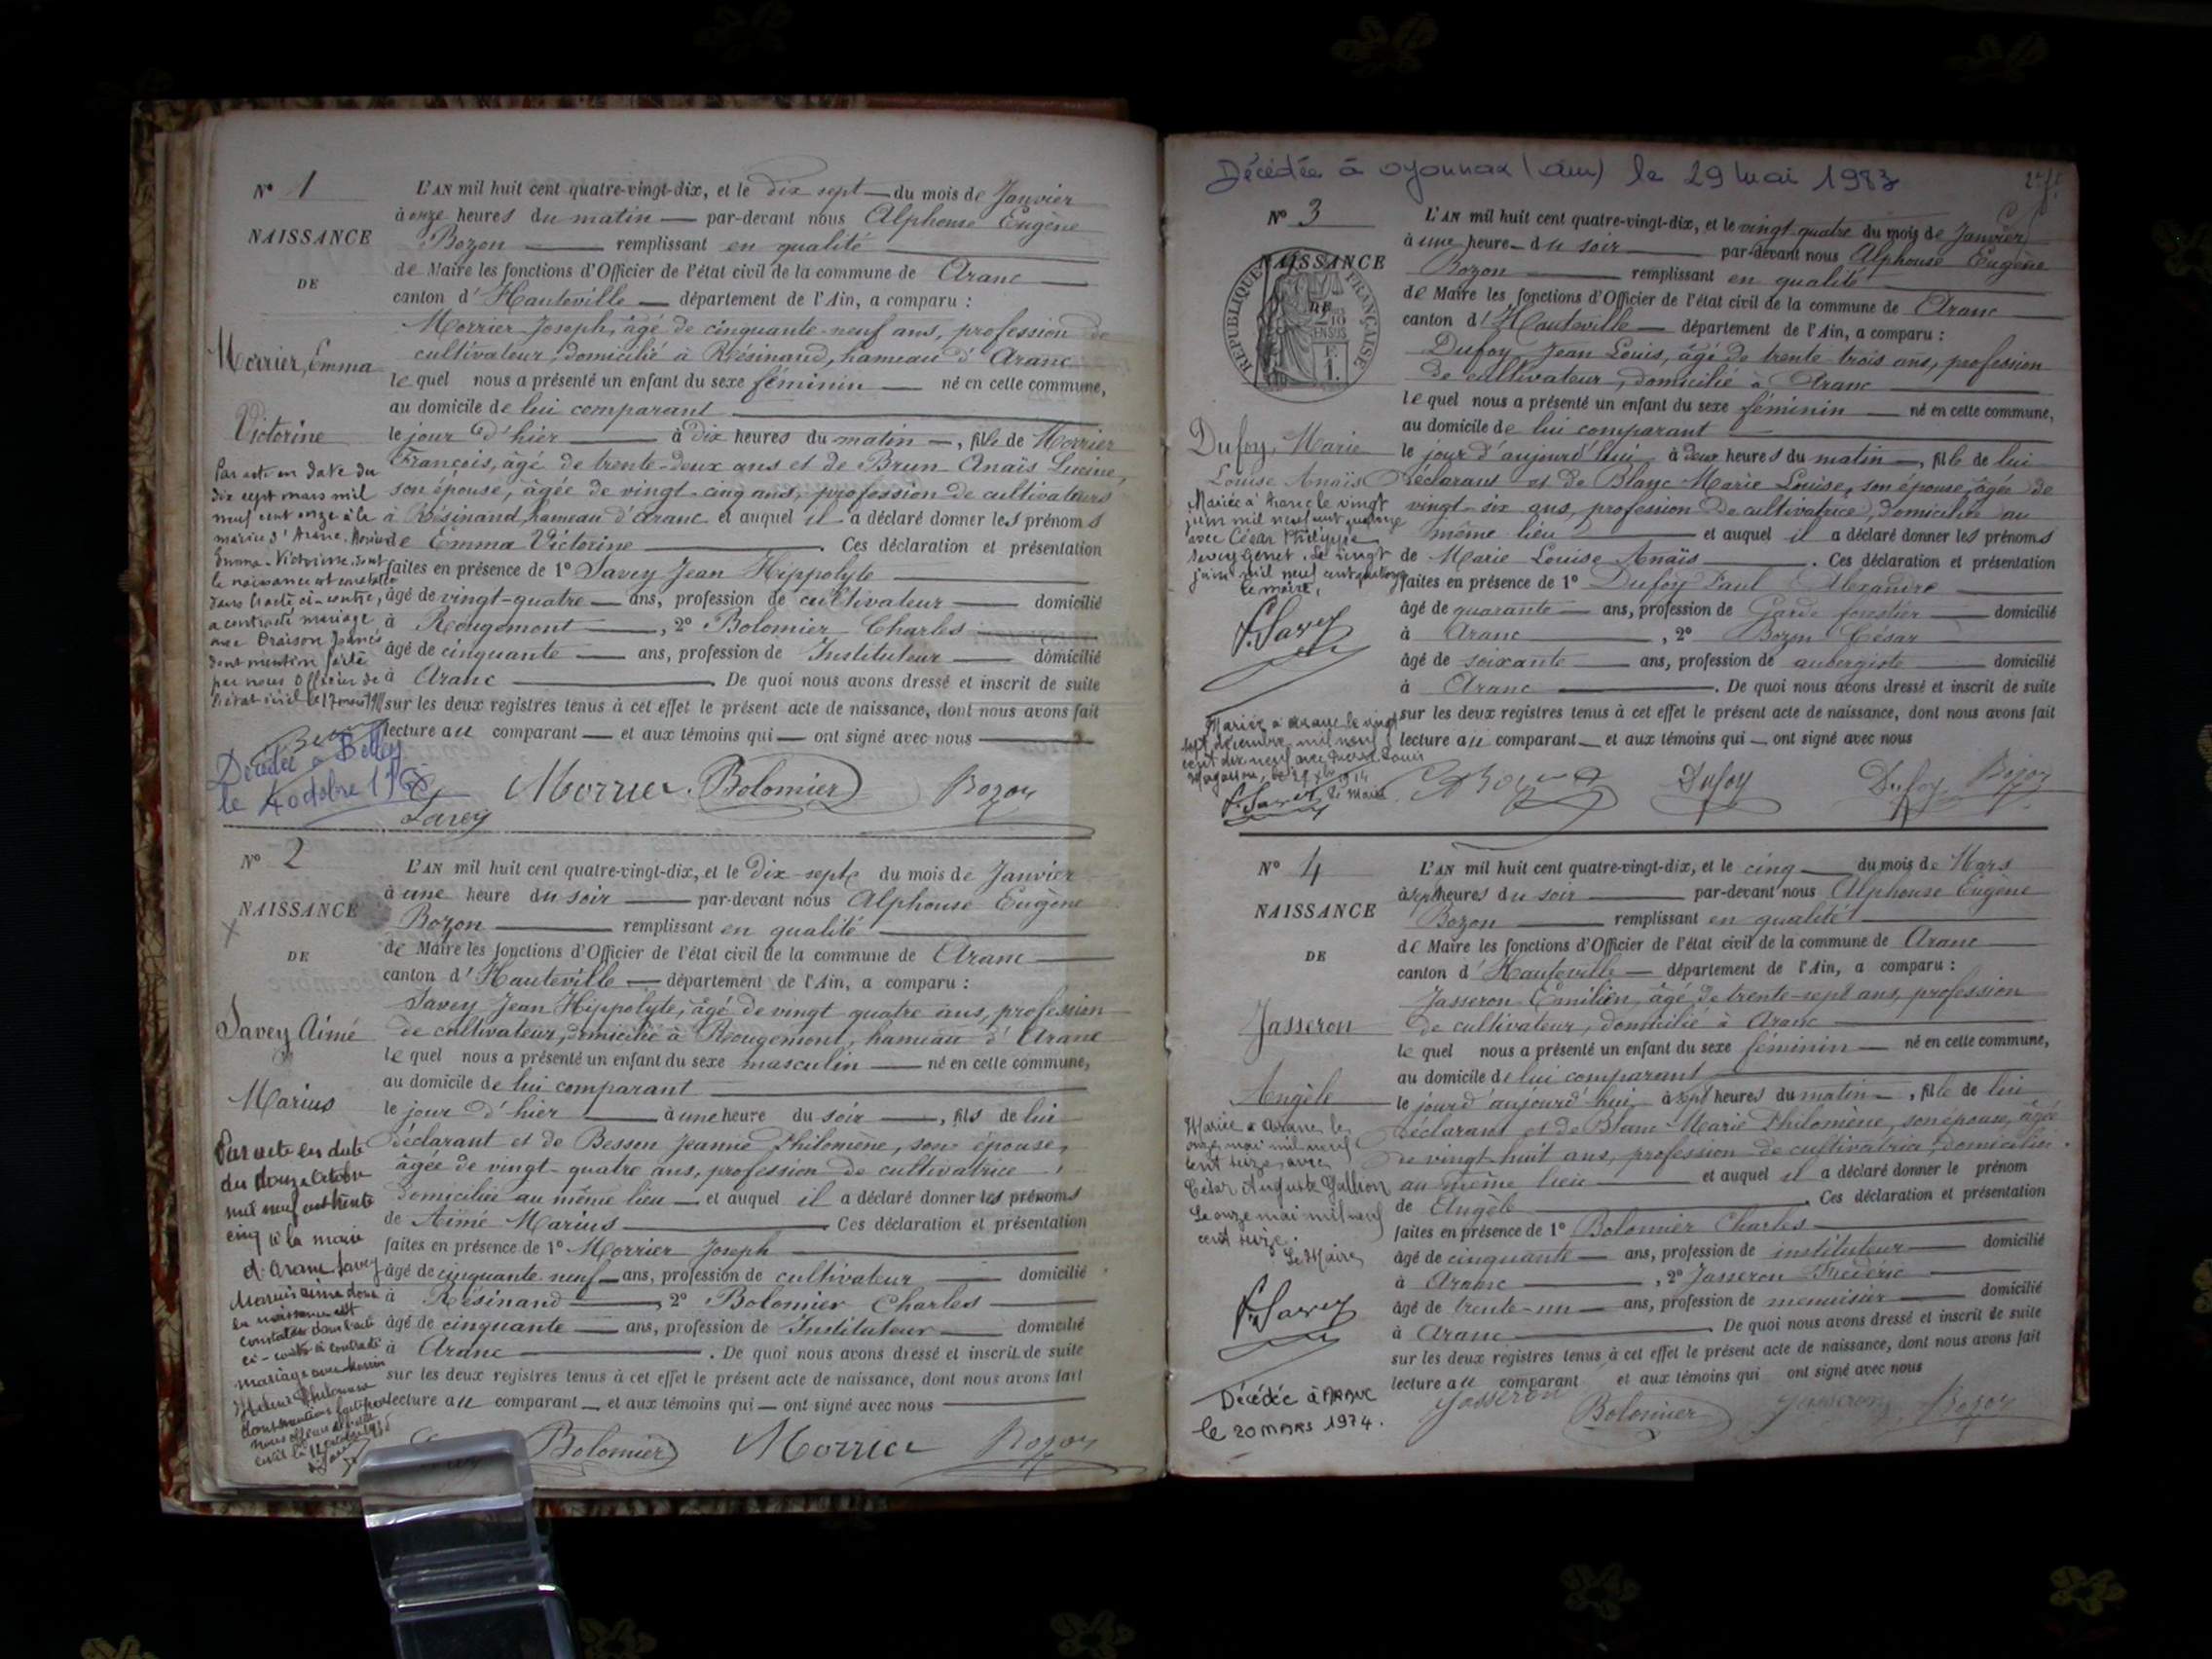 N° 1
NAISSANCE
DE
Morrier, Emma
Victorine
Par acte en date du
dix sept mars mil
neuf cent onze à la
mairie d'Aranc, Morrier
Emma-Victorine dont
la naissance est constatée
dans l'acte ci-contre,
a contracté mariage
avec Oraison
dont mention faite
par nous Officier de
l'état civil le 17 mars 1911
Décédée à Belley
le 4 octobre
L'AN mil huit cent quatre-vingt-dix, et le dix sept du mois de Janvier
à onze heures du matin par-devant nous Alphonse Eugène
Bozon remplissant en qualité
de Maire les fonctions d'Officier de l'état civil de la commune de Aranc
canton d'Hauteville département de l'Ain, a comparu :
Morrier Joseph, âgé de cinquante-neuf ans, profession de
cultivateur domicilié à Résinand, hameau d'Aranc
lequel nous a présenté un enfant du sexe féminin né en cette commune,
au domicile de lui comparant
le jour d'hier à dix heures du matin, fille de Morrier
François, âgé de trente-deux ans et de Brun Anaïs Lucine,
son épouse, âgée de vingt-cinq ans, profession de cultivateurs
à Résinand, hameau d'Aranc et auquel il a déclaré donner les prénoms
de Emma Victorine. Ces déclaration et présentation
faites en présence de 1° Savey Jean Hippolyte
âgé de vingt-quatre ans, profession de cultivateur domicilié
à Rougemont, 2° Bolomier Charles
âgé de cinquante ans, profession de Instituteur domicilié
à Aranc. De quoi nous avons dressé et inscrit de suite
sur les deux registres tenus à cet effet le présent acte de naissance, dont nous avons fait
lecture au comparant et aux témoins qui ont signé avec nous
Morrier Bolomier Bozon
Savey
N° 2
NAISSANCE
DE
Savey Aimé
Marius
Par acte en date
du douze Octobre
mil neuf cent trente
cinq à la mairie
d'Aranc Savey
Marius aimé dont
la naissance est
constatée dans l'acte
ci-contre a contracté
mariage avec
Philomène
L'AN mil huit cent quatre-vingt-dix, et le dix-sept du mois de Janvier
à une heure du soir par-devant nous Alphonse Eugène
Bozon remplissant en qualité
de Maire les fonctions d'Officier de l'état civil de la commune de Aranc
canton d'Hauteville département de l'Ain, a comparu :
Savey Jean Hippolyte, âgé de vingt quatre ans, profession
de cultivateur, domicilié à Rougemont, hameau d'Aranc
lequel nous a présenté un enfant du sexe masculin né en cette commune,
au domicile de lui comparant
le jour d'hier à une heure du soir, fils de lui
déclarant et de Besson Jeannie Philomène, son épouse,
âgée de vingt-quatre ans, profession de cultivatrice,
domiciliée au même lieu et auquel il a déclaré donner les prénoms
de Aimé Marius Ces déclaration et présentation
faites en présence de 1° Morrier Joseph
âgé de cinquante neuf ans, profession de cultivateur domicilié
à Résinand, 2° Bolomier Charles
âgé de cinquante ans, profession de Instituteur domicilié
à Aranc. De quoi nous avons dressé et inscrit de suite
sur les deux registres tenus à cet effet le présent acte de naissance, dont nous avons fait
lecture au comparant et aux témoins qui ont signé avec nous
Bolomier Morrier Bozon
Décédée à Oyonnax (Ain) le 29 Mai 1983
N° 3
NAISSANCE
DE
RÉPUBLIQUE FRANÇAISE
Dufoy, Marie
Louise Anaïs
Mariée à Aranc le vingt
juin mil neuf cent quatorze
avec César Philippe
Savey Genet. Le vingt
juin mil neuf cent quatorze
Le maire,
F. Savey
Mariée à Aranc le vingt
sept décembre mil neuf
cent dix neuf avec
F. Savey Le Maire
L'AN mil huit cent quatre-vingt-dix, et le vingt quatre du mois de Janvier
à une heure du soir par-devant nous Alphonse Eugène
Bozon remplissant en qualité
de Maire les fonctions d'Officier de l'état civil de la commune de Aranc
canton d'Hauteville département de l'Ain, a comparu :
Dufoy Jean Louis, âgé de trente trois ans, profession
de cultivateur, domicilié à Aranc
lequel nous a présenté un enfant du sexe féminin né en cette commune,
au domicile de lui comparant
le jour d'aujourd'hui à deux heures du matin, fille de lui
déclarant et de Blanc Marie Louise, son épouse, âgée de
vingt-six ans, profession de cultivatrice, domiciliée au
même lieu et auquel il a déclaré donner les prénoms
de Marie Louise Anaïs. Ces déclaration et présentation
faites en présence de 1° Dufoy Paul Alexandre
âgé de quarante ans, profession de Garde forestier domicilié
à Aranc, 2° Bozon César
âgé de soixante ans, profession de aubergiste domicilié
à Aranc. De quoi nous avons dressé et inscrit de suite
sur les deux registres tenus à cet effet le présent acte de naissance, dont nous avons fait
lecture au comparant et aux témoins qui ont signé avec nous
Bozon Dufoy Dufoy Bozon
N° 4
NAISSANCE
DE
Jasseron
Angèle
Mariée à Aranc le
onze mai mil neuf
cent seize, avec
César Auguste Gallion
Le onze mai mil neuf
cent seize.
Le Maire,
F. Savey
Décédée à ARANC
le 20 MARS 1974.
L'AN mil huit cent quatre-vingt-dix, et le cinq du mois de Mars
à sept heures du soir par-devant nous Alphonse Eugène
Bozon remplissant en qualité
de Maire les fonctions d'Officier de l'état civil de la commune de Aranc
canton d'Hauteville département de l'Ain, a comparu :
Jasseron Emilien, âgé de trente-sept ans, profession
de cultivateur, domicilié à Aranc
lequel nous a présenté un enfant du sexe féminin né en cette commune,
au domicile de lui comparant
le jour d'aujourd'hui, à sept heures du matin, fille de lui
déclarant et de Blanc Marie Philomène, son épouse, âgée
de vingt huit ans, profession de cultivatrice, domiciliée
au même lieu et auquel il a déclaré donner le prénom
de Angèle. Ces déclaration et présentation
faites en présence de 1° Bolomier Charles
âgé de cinquante ans, profession de instituteur domicilié
à Aranc, 2° Jasseron Frédéric
âgé de trente-un ans, profession de menuisier domicilié
à Aranc. De quoi nous avons dressé et inscrit de suite
sur les deux registres tenus à cet effet le présent acte de naissance, dont nous avons fait
lecture au comparant et aux témoins qui ont signé avec nous
Jasseron Bolomier Jasseron Bozon